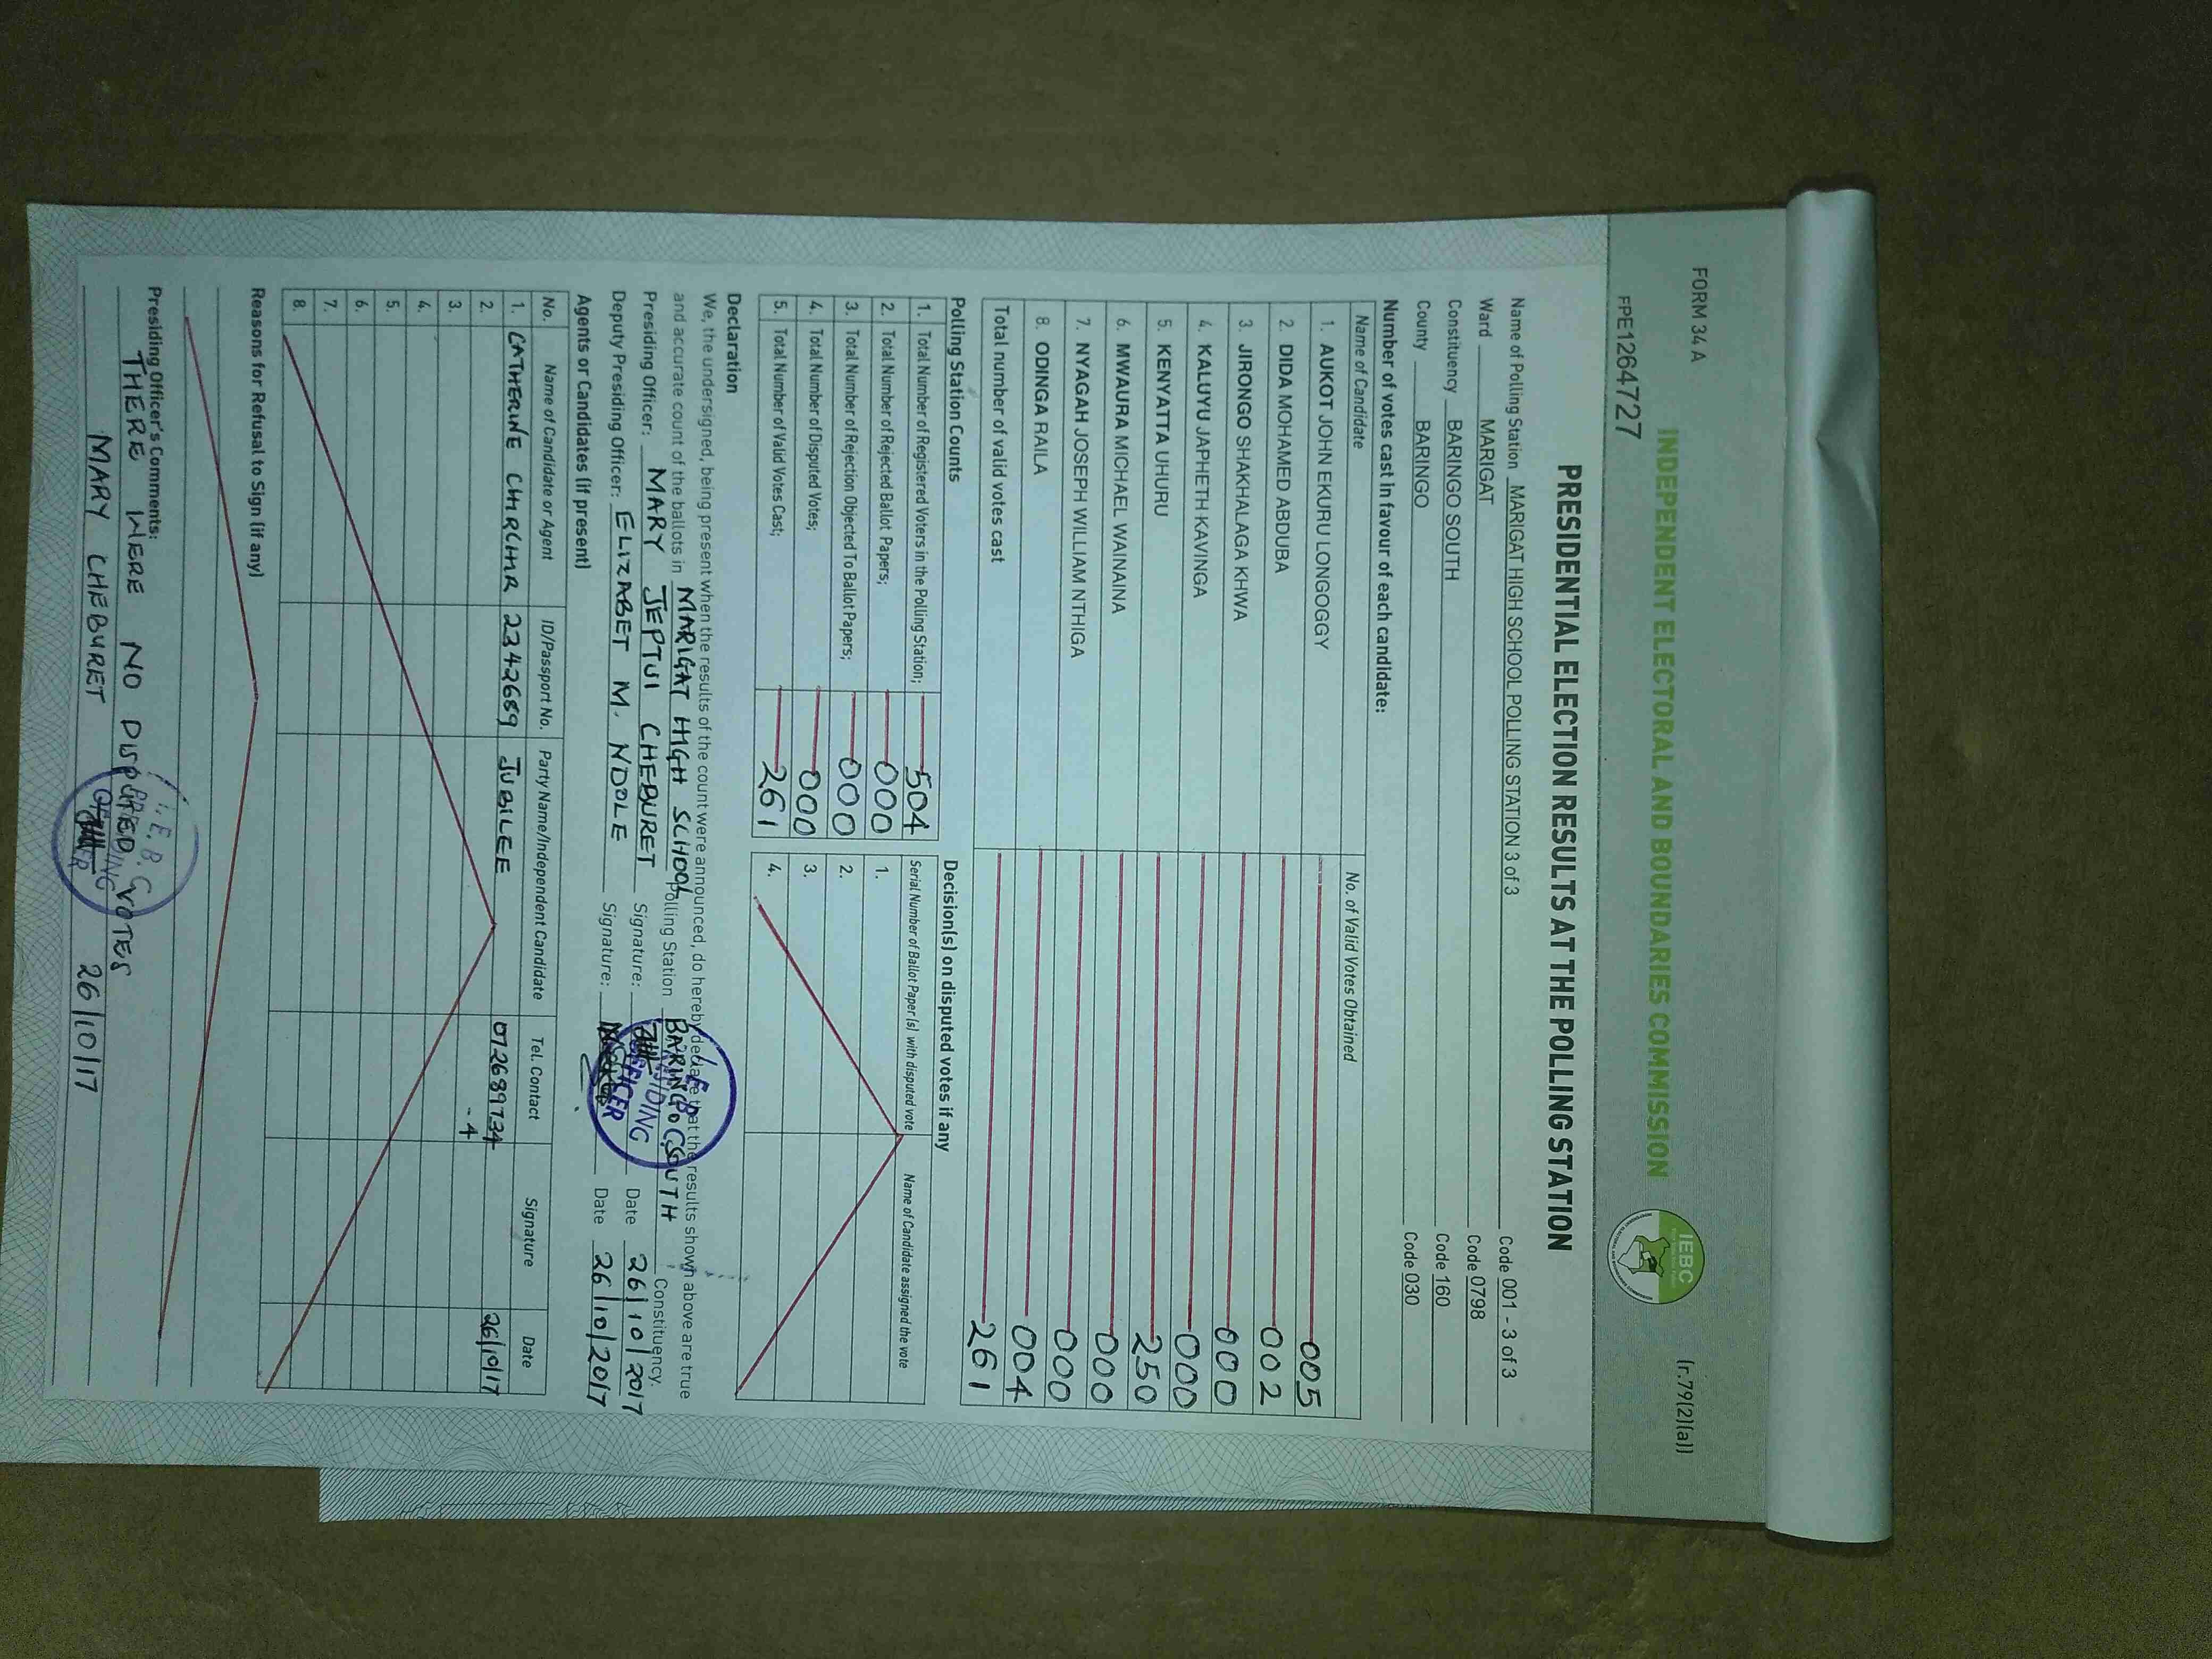 FORM 34 A
(r.79(2)(a))
INDEPENDENT ELECTORAL AND BOUNDARIES COMMISSION
IEBC
FPE1264727
PRESIDENTIAL ELECTION RESULTS AT THE POLLING STATION
Name of Polling Station MARIGAT HIGH SCHOOL POLLING STATION 3 of 3 Code 001 - 3 of 3
Ward MARIGAT Code 0798
Constituency BARINGO SOUTH Code 160
County BARINGO Code 030
Number of votes cast in favour of each candidate:
Name of Candidate No. of Valid Votes Obtained
1. AUKOT JOHN EKURU LONGOGGY 005
2. DIDA MOHAMED ABDUBA 002
3. JIRONGO SHAKHALAGA KHWA 000
4. KALUYU JAPHETH KAVINGA 000
5. KENYATTA UHURU 250
6. MWAURA MICHAEL WAINAINA 000
7. NYAGAH JOSEPH WILLIAM NTHIGA 000
8. ODINGA RAILA 004
Total number of valid votes cast 261
Polling Station Counts
1. Total Number of Registered Voters in the Polling Station; 504
2. Total Number of Rejected Ballot Papers; 000
3. Total Number of Rejection Objected To Ballot Papers; 000
4. Total Number of Disputed Votes; 000
5. Total Number of Valid Votes Cast; 261
Decision(s) on disputed votes if any
Serial Number of Ballot Paper (s) with disputed vote Name of Candidate assigned the vote
1.
2.
3.
4.
Declaration
We, the undersigned, being present when the results of the count were announced, do hereby declare that the results shown above are true
and accurate count of the ballots in MARIGAT HIGH SCHOOL Polling Station BARINGO SOUTH Constituency.
Presiding Officer: MARY JEPTUI CHEBURET Signature: Date 26/10/2017
Deputy Presiding Officer: ELIZABET M. NDOLE Signature: Date 26/10/2017
Agents or Candidates (if present)
No. Name of Candidate or Agent ID/Passport No. Party Name/Independent Candidate Tel. Contact Signature Date
1. CATHERINE 2342689 JUBILEE 072689734 26/10/17
2. -4
3.
4.
5.
6.
7.
8.
Reasons for Refusal to Sign (if any)
Presiding Officer's Comments:
THERE WERE NO DISPUTED VOTES
MARY CHEBURET 26/10/17